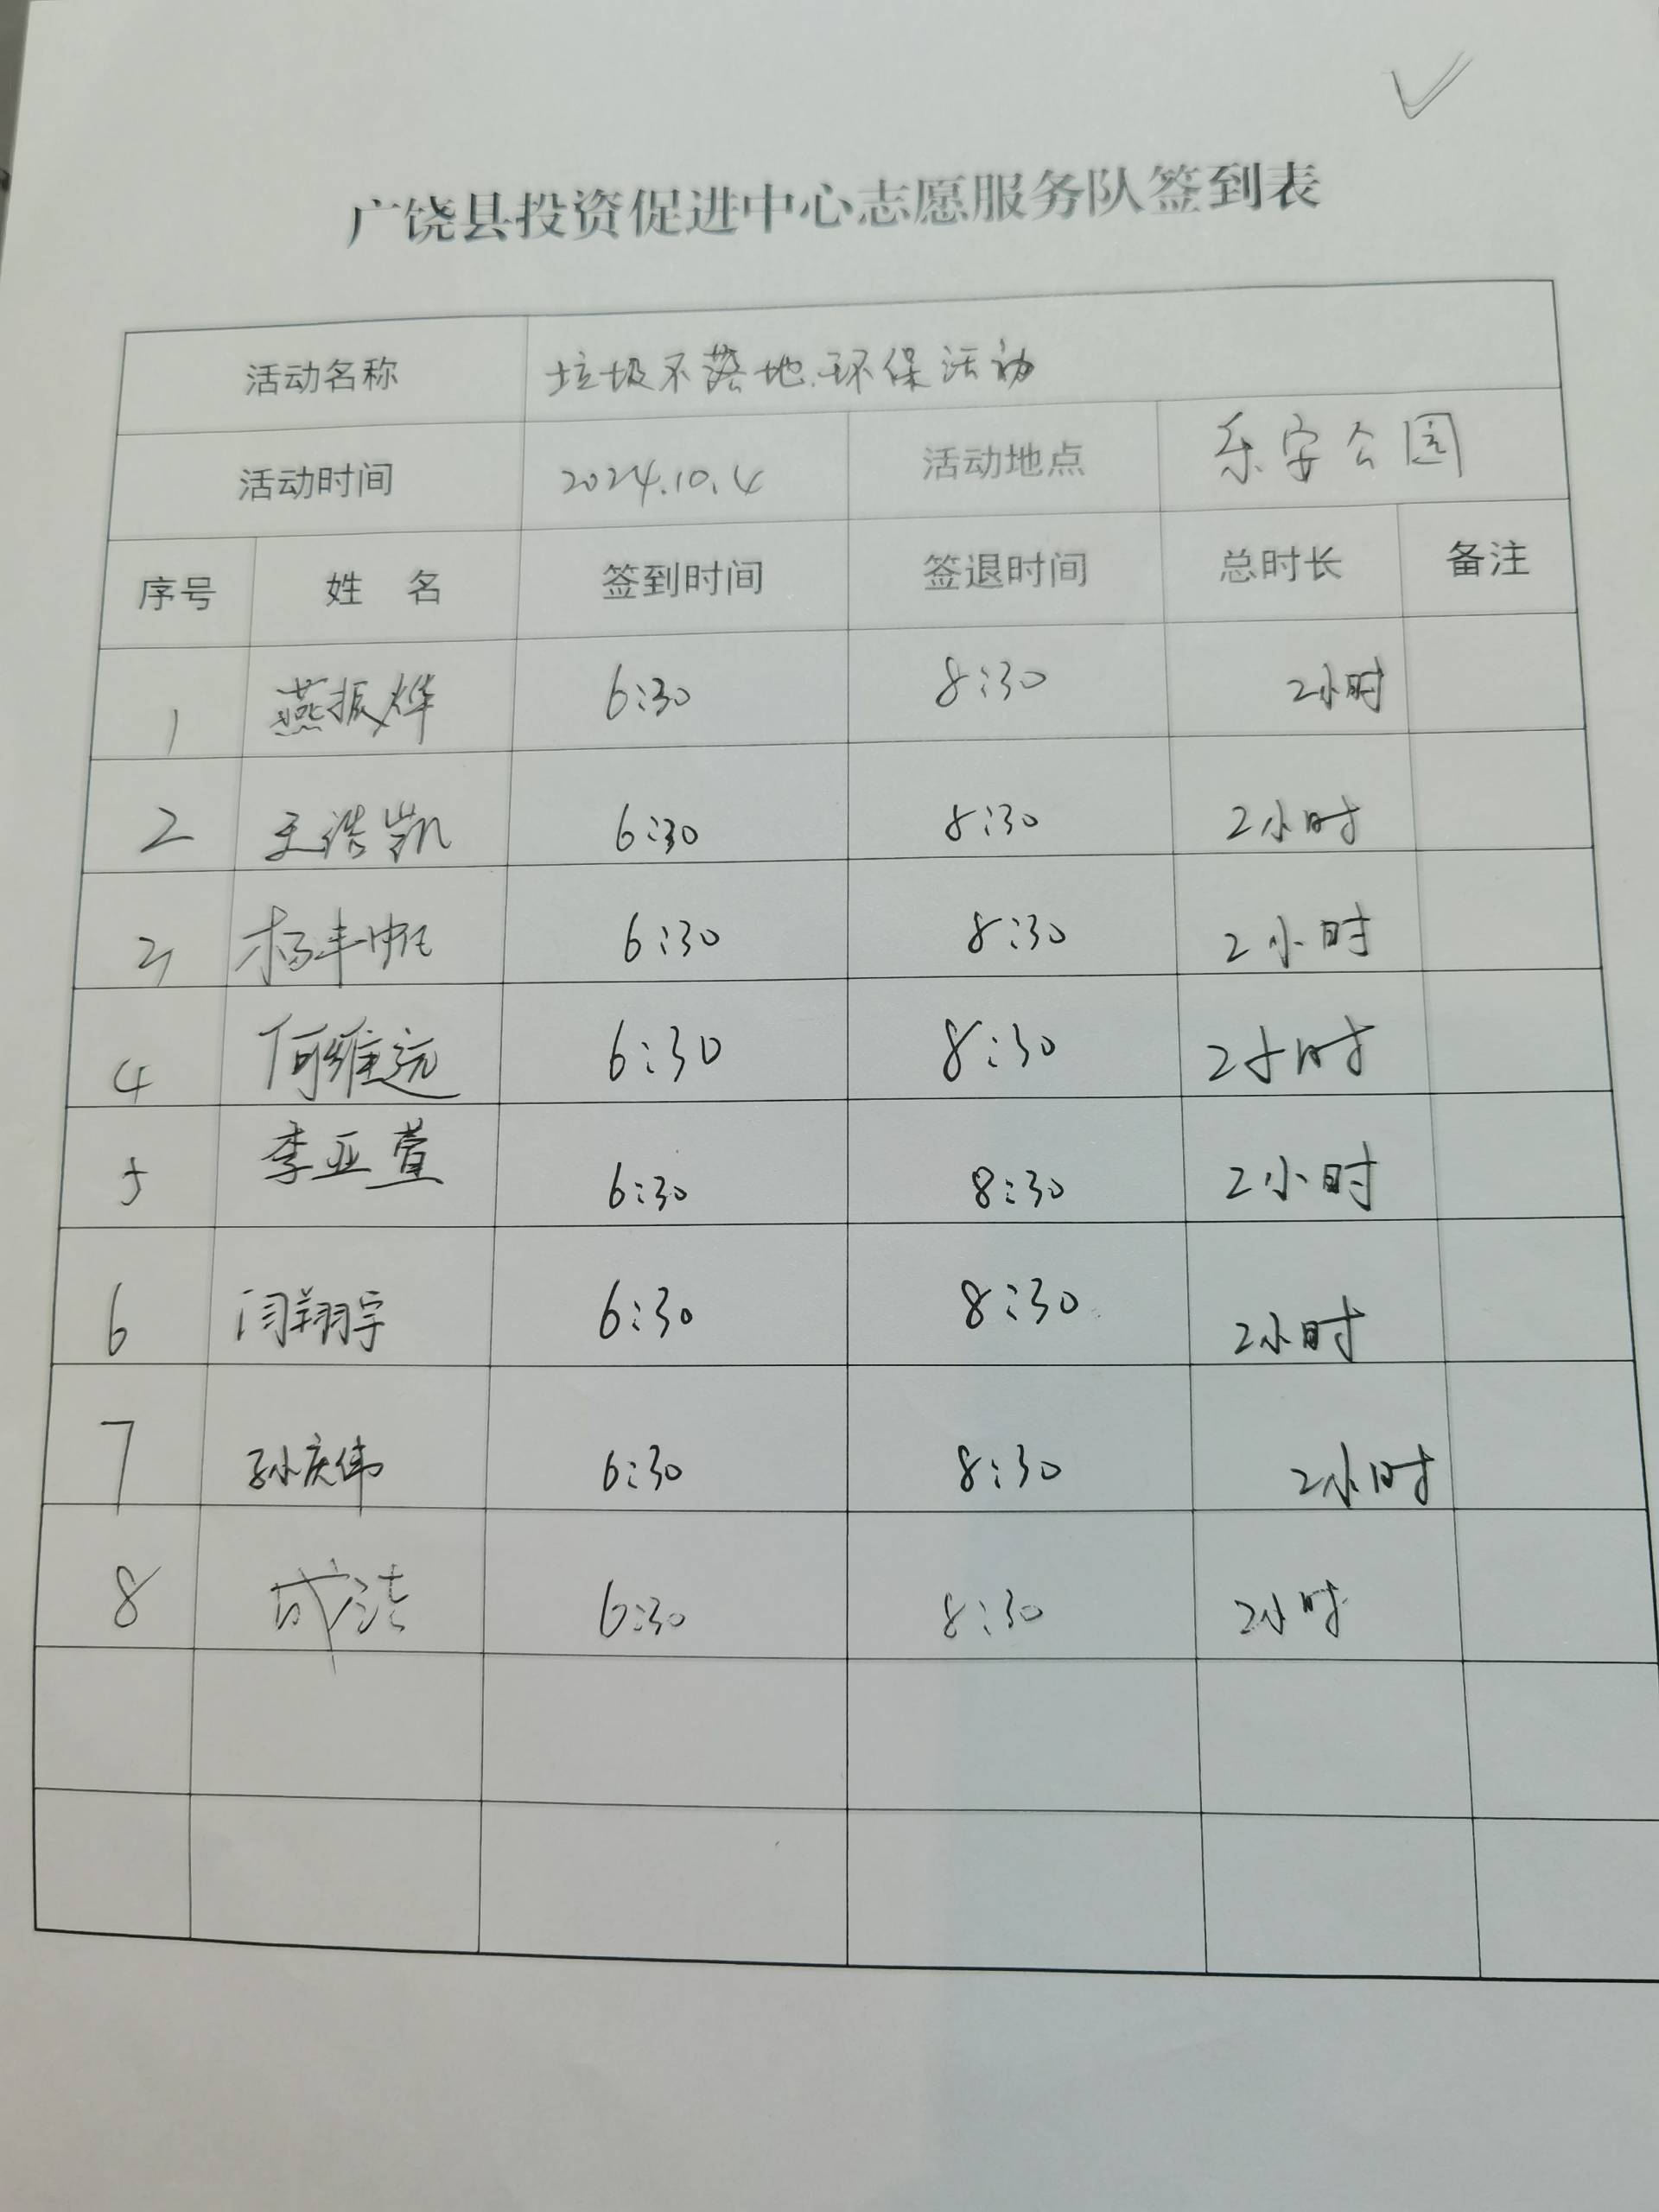 广饶县投资促进中心志愿服务队签到表
活动名称 垃圾不落地.环保活动
活动时间 2024.10.4 活动地点 乐安公园
序号 姓 名 签到时间 签退时间 总时长 备注
1 燕振烨 6:30 8:30 2小时
2 王浩凯 6:30 8:30 2小时
3 杨丰帆 6:30 8:30 2小时
4 何维远 6:30 8:30 2小时
5 李亚萱 6:30 8:30 2小时
6 闫翔宇 6:30 8:30 2小时
7 孙庆伟 6:30 8:30 2小时
8 成洁 6:30 8:30 2小时